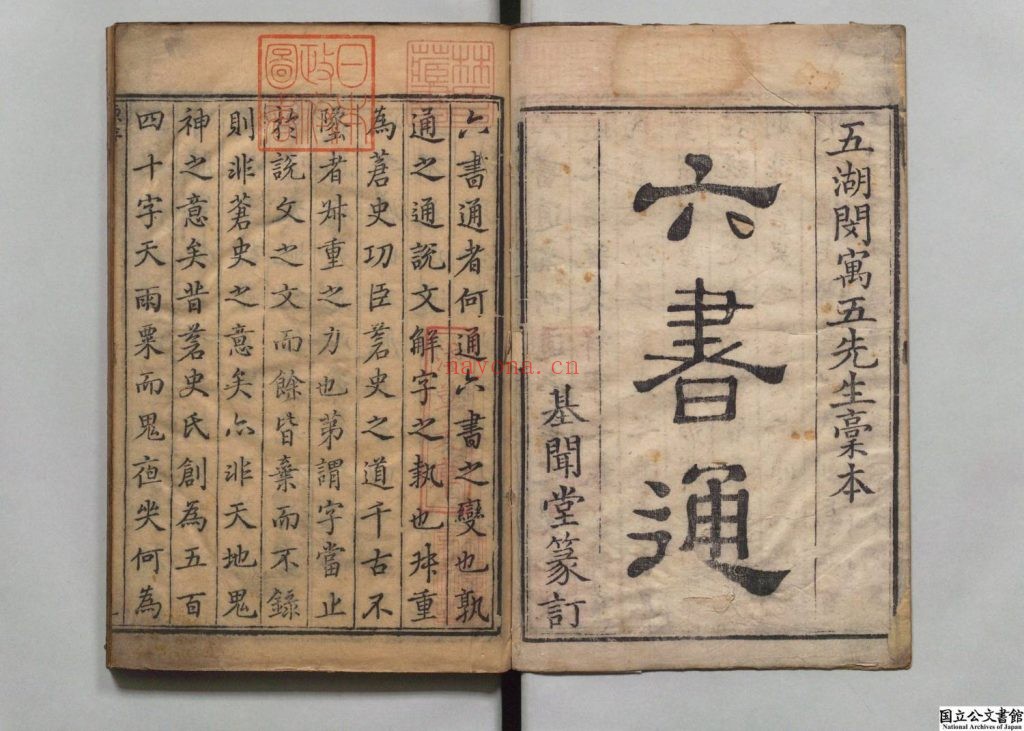 五湖閔寓五先生藁本
六書通
基聞堂篆訂
六書通者何通六書之變也孰
通之通說文解字之執也叔重
為蒼史功臣蒼史之道千古不
墜者叔重之力也第謂字當止
於說文之文而餘皆棄而不錄
則非蒼史之意矣亦非天地鬼
神之意矣昔蒼史氏創為五百
四十字天雨粟而鬼夜哭何為
日本
政府
圖書
nayona.cn
国立公文書館
National Archives of Japan